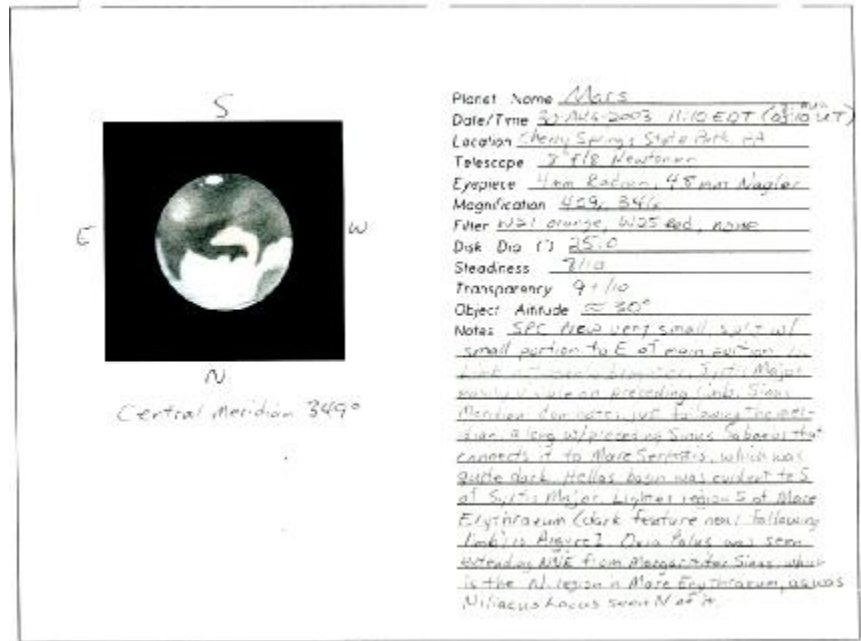 S
E
W
N
Central Meridian 349°
Planet Name Mars
Date/Time AUG 2003 11:10 EDT UT)
Location Cherry Springs State Park, PA
Telescope 8" f/8 Newtonian
Eyepiece 4mm Radian, 4.8 mm Nagler
Magnification
Filter W21 orange, W25 Red, none
Disk Dia (") 25.0
Steadiness 8/10
Transparency 9+/10
Object Altitude ≈ 30°
Notes SPC Now very small, split w/
small portion to E of main portion
Syrtis Major
easily visible on preceding limb. Sinus
Meridian dominates, just following the meri-
dian, along w/preceding Sinus Sabaeus that
connects it to Mare Serpentis, which was
quite dark. Hellas basin was evident to S
of Syrtis Major. Lighter region S of Mare
Erythraeum (dark feature near following
limb) is Argyre I. Oxia Palus was seen
extending NNE from Margaritifer Sinus, which
is the N. region in Mare Erythraeum, as was
Niliacus Lacus seen N of it.